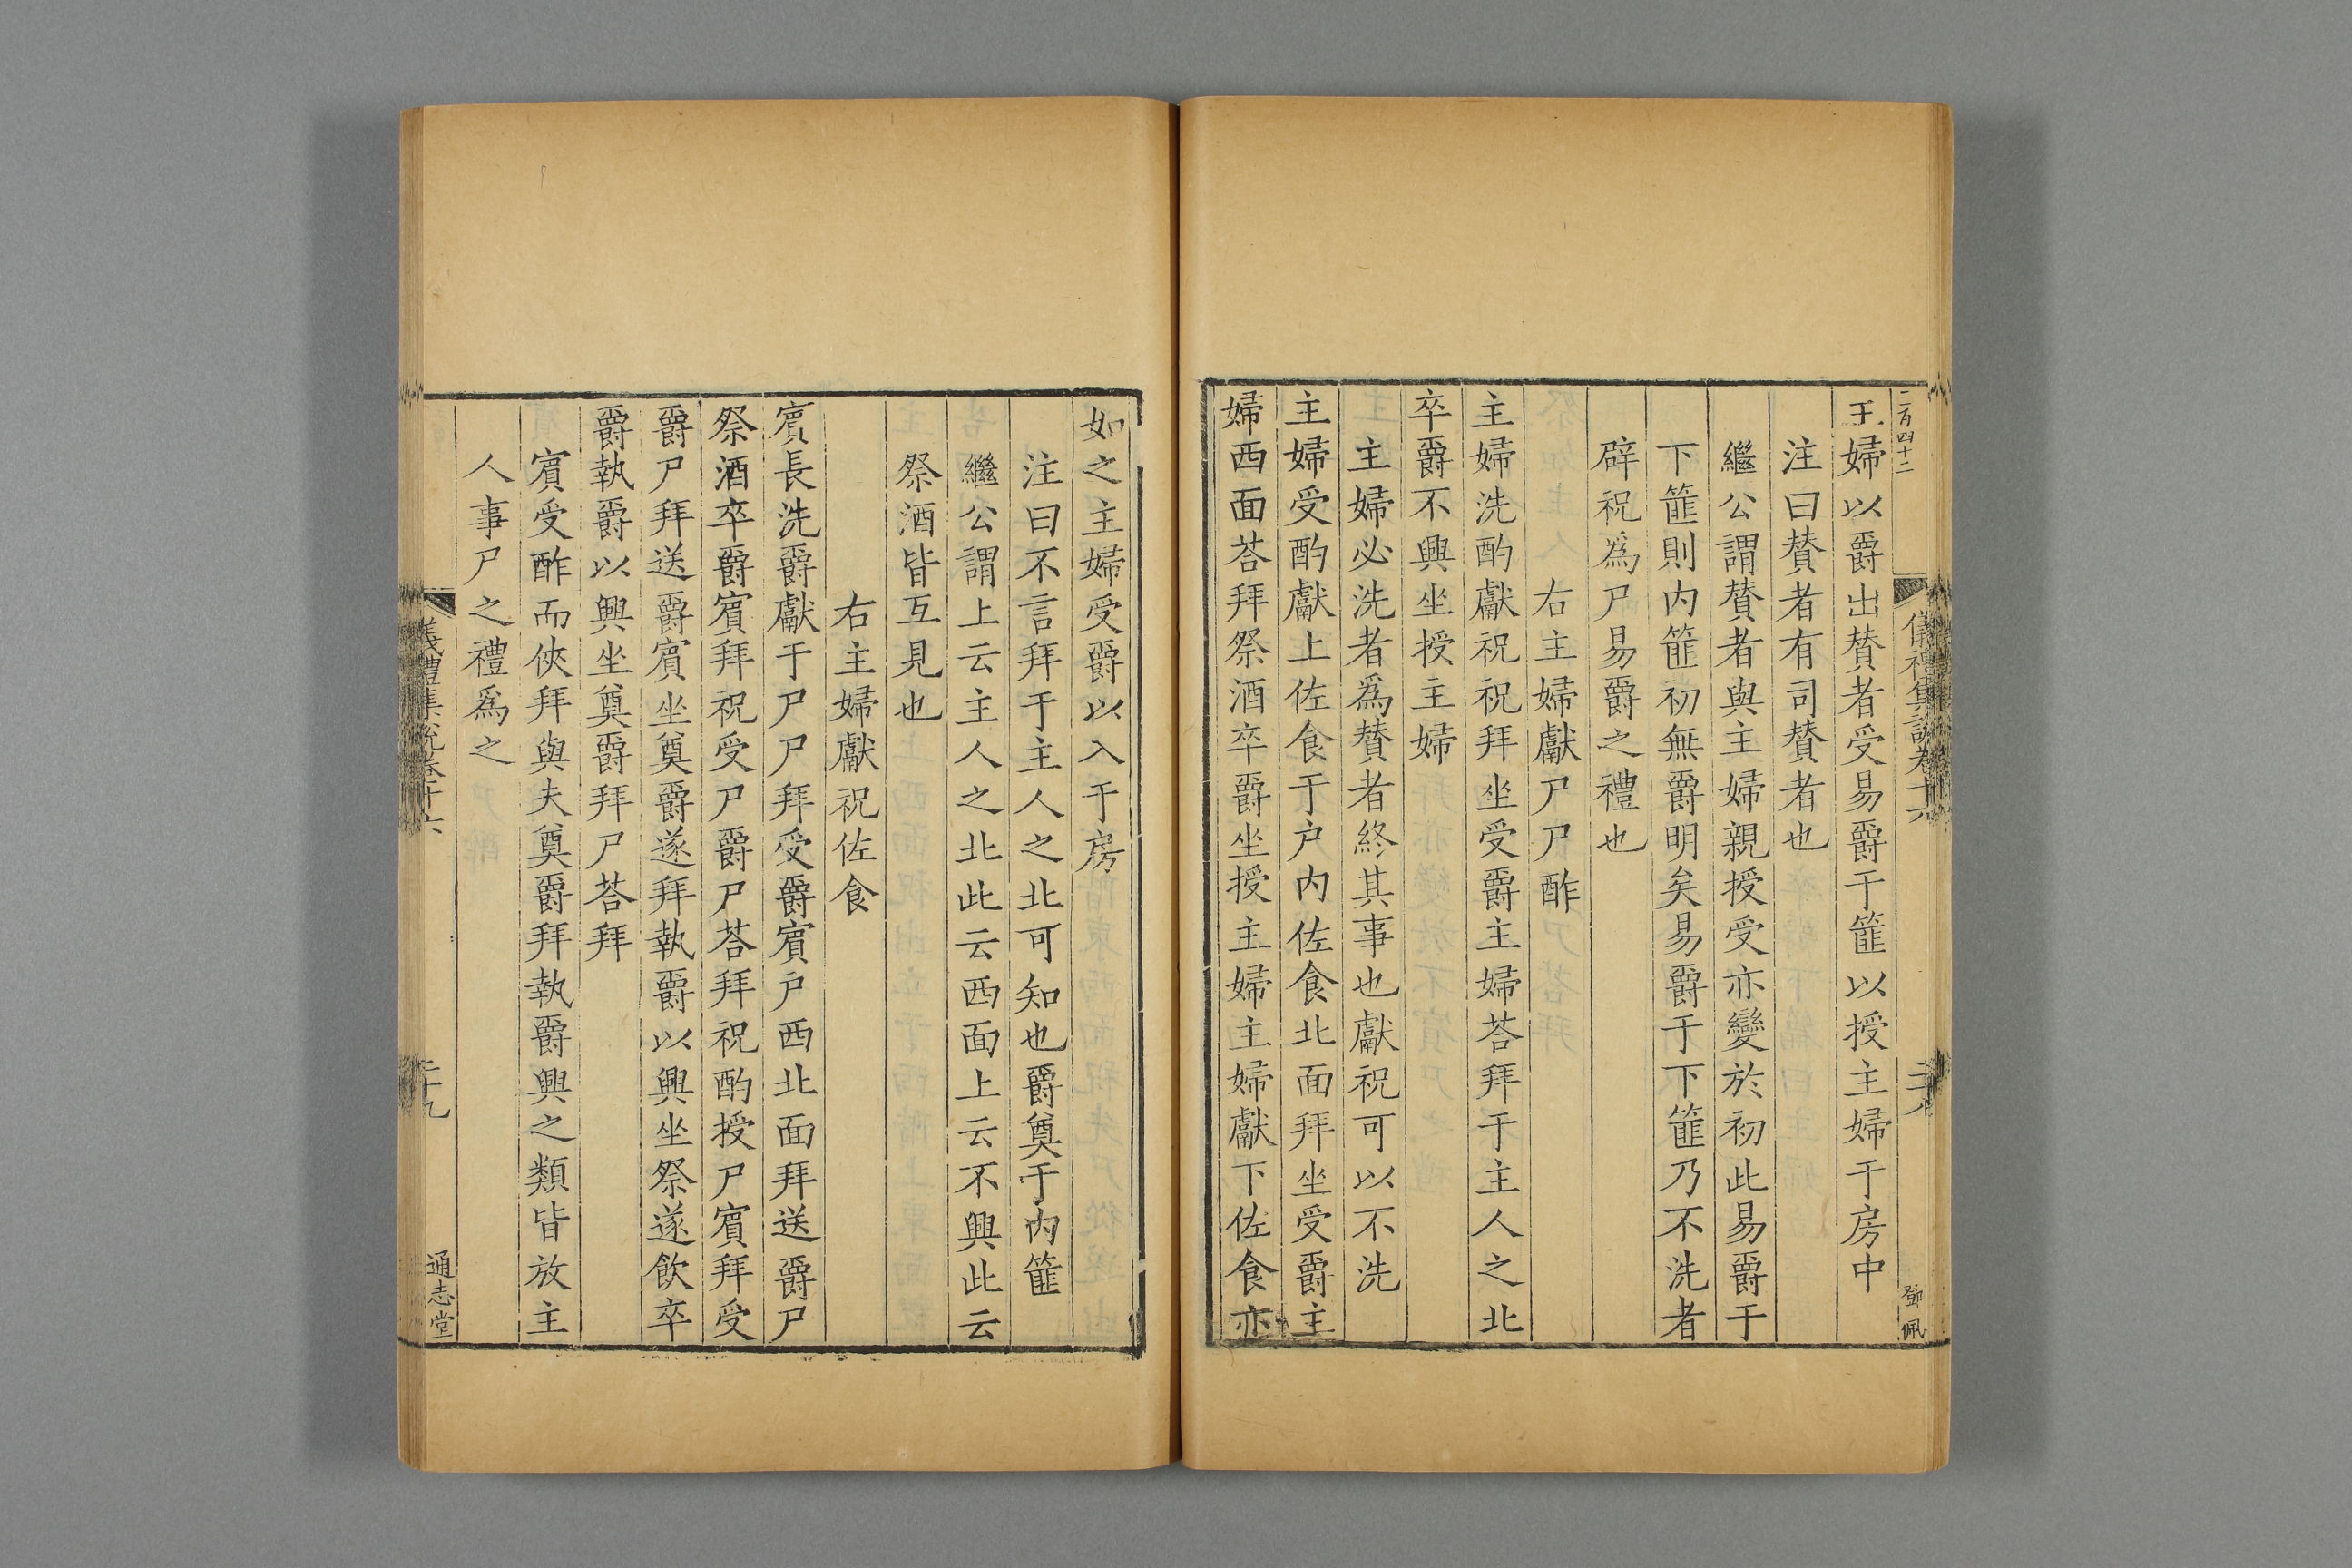 二百四十二
儀禮集說卷十六
二十八
鄧佩
主婦以爵出賛者受易爵于篚以授主婦于房中
注曰賛者有司賛者也
繼公謂賛者與主婦親授受亦變於初此易爵于
下篚則内篚初無爵明矣易爵于下篚乃不洗者
辟祝爲尸易爵之禮也
右主婦獻尸尸酢
主婦洗酌獻祝祝拜坐受爵主婦荅拜于主人之北
卒爵不興坐授主婦
主婦必洗者爲賛者終其事也獻祝可以不洗
主婦受酌獻上佐食于户内佐食北面拜坐受爵主
婦西面荅拜祭酒卒爵坐授主婦主婦獻下佐食亦
如之主婦受爵以入于房
注曰不言拜于主人之北可知也爵奠于内篚
繼公謂上云主人之北此云西面上云不興此云
祭酒皆互見也
右主婦獻祝佐食
賔長洗爵獻于尸尸拜受爵賔户西北面拜送爵尸
祭酒卒爵賔拜祝受尸爵尸荅拜祝酌授尸賔拜受
爵尸拜送爵賔坐奠爵遂拜執爵以興坐祭遂飲卒
爵執爵以興坐奠爵拜尸荅拜
賔受酢而俠拜與夫奠爵拜執爵興之類皆放主
人事尸之禮爲之
儀禮集說卷十六
二十九
通志堂